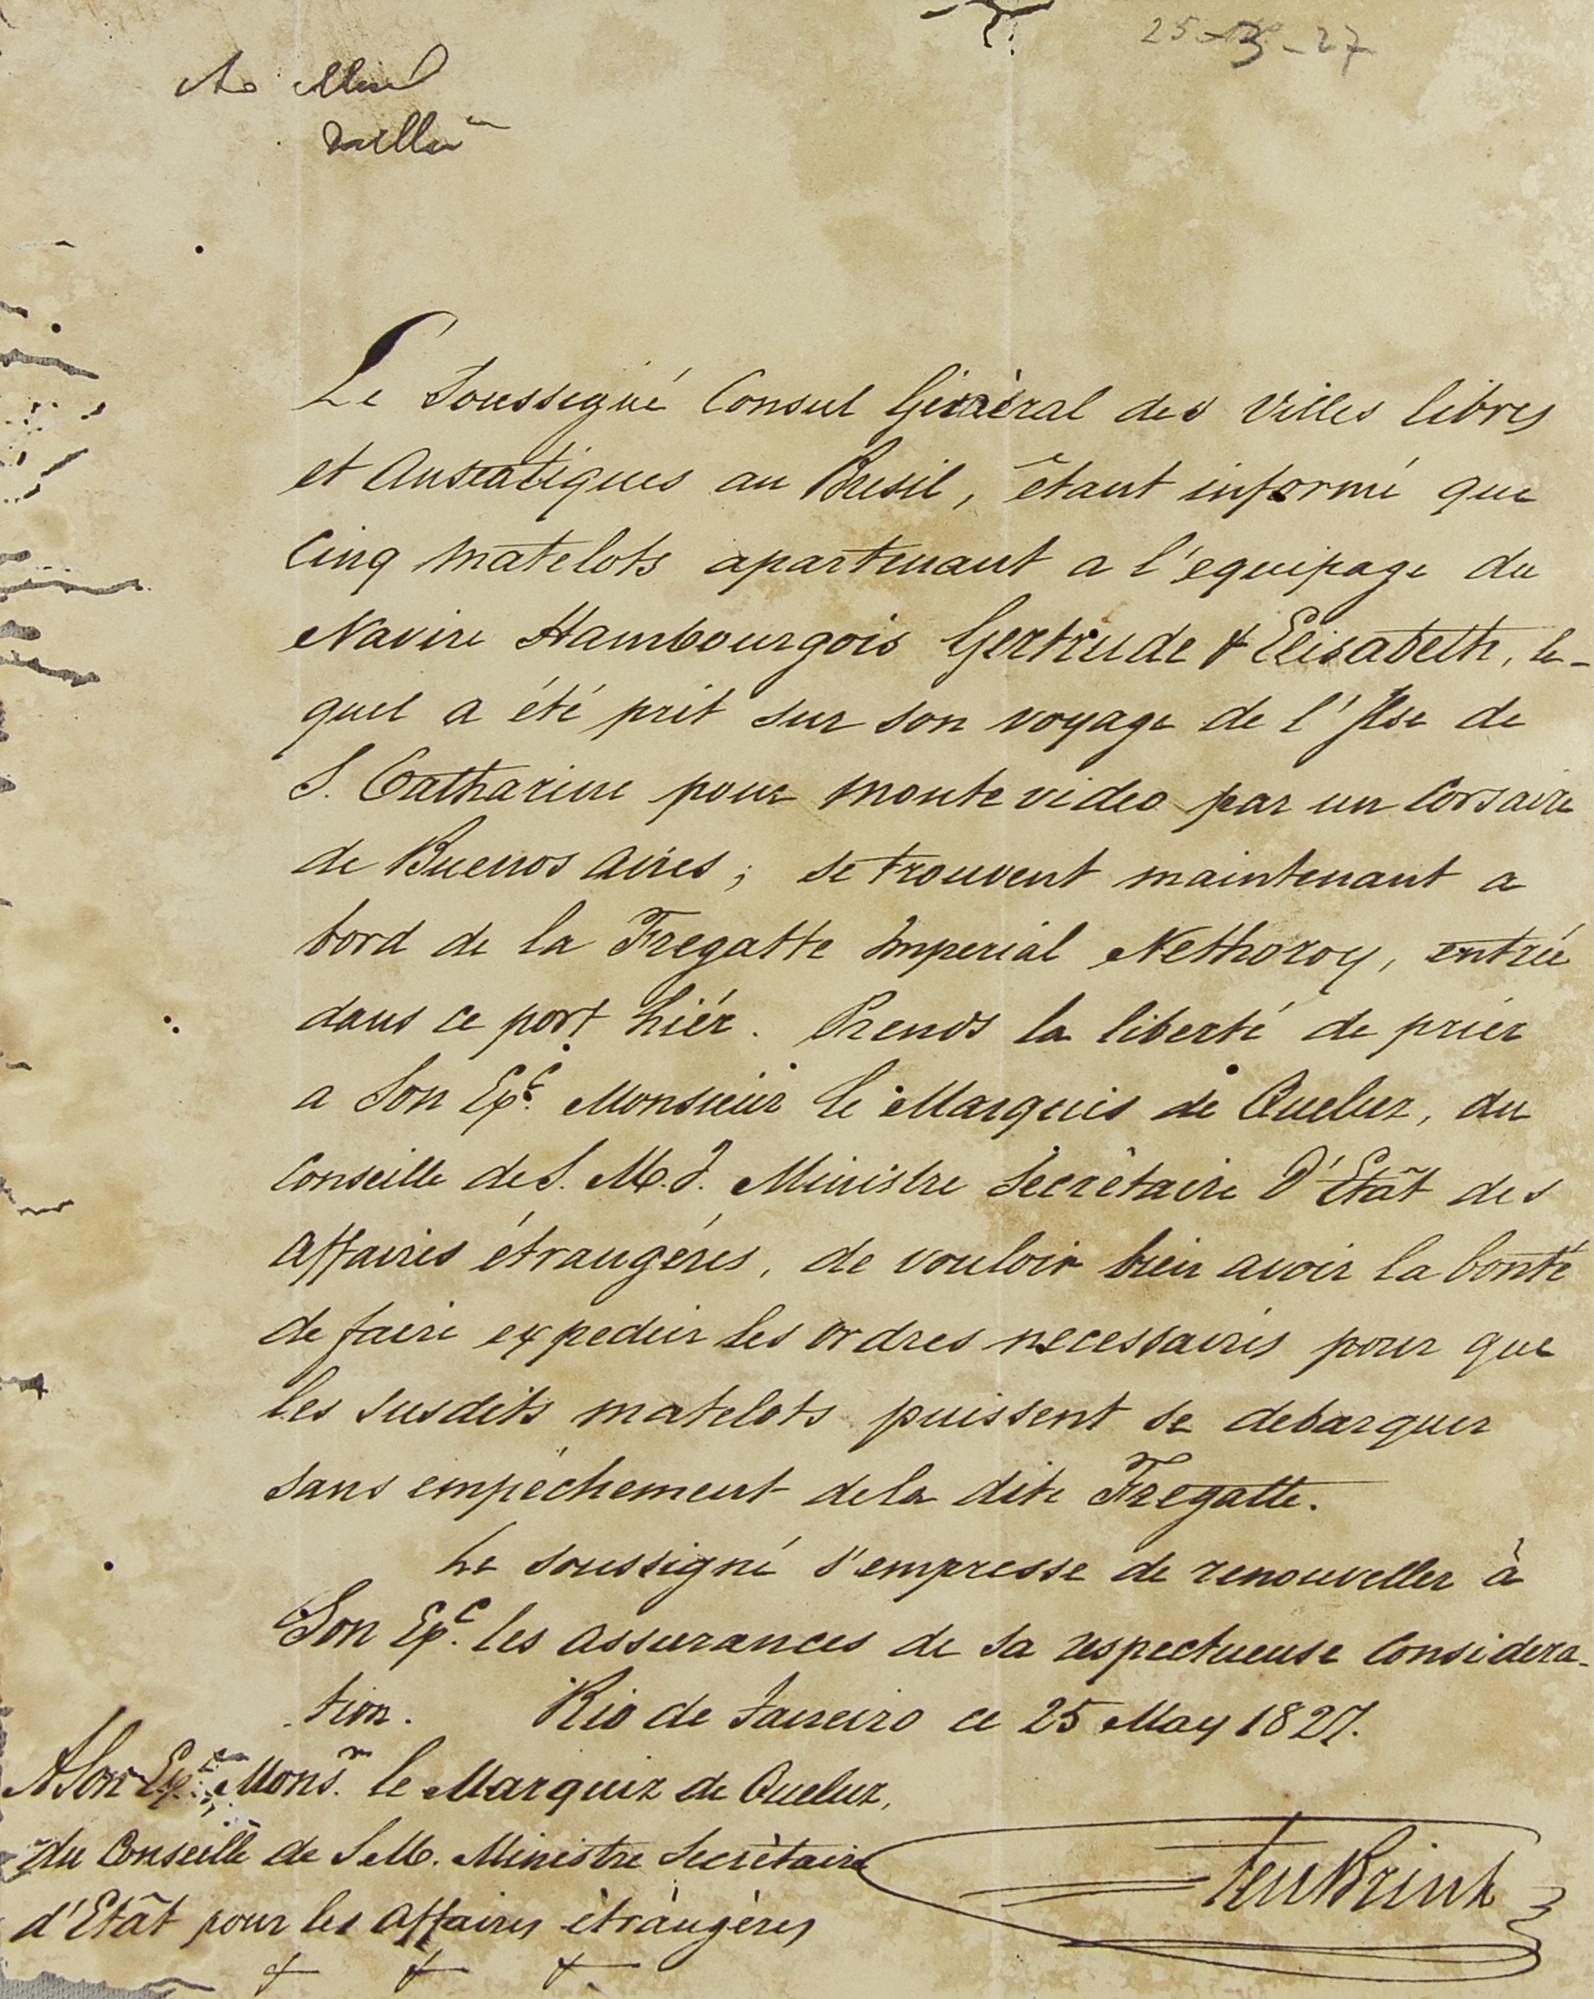 25 - 3 - 27
Le Soussigné Consul Général des Villes libres
et Anseatiques au Bresil, étant informé que
Cinq Matelots apartenant a l'equipage du
Navire Hambourgois Gertrude & Elisabeth, le-
quel a été prit sur son voyage de l'Ilse de
S. Catharine pour Monte video par un Corsaire
de Buenos Aires; se trouvent maintenant a
bord de la Fregatte Imperial Netheroy, entrée
dans ce port hiér. Prends la liberté de priér
a Son Exc. Monsieur le Marquis de Queluz, du
Conseille de S. M. I. Ministre Secrètaire D'Etât des
Affaires étrangéres, de vouloir bien avoir la bonté
de faire expedier les ordres necessairés pour que
les susdits matelots puissent se debarquer
sans empéchement dela dite Fregatte.
Le soussigné s'empresse de renouveller à
Son Exc. les assurances de sa respectueuse Considera-
tion. Rio de Janeiro ce 25 May 1827.
A Son Exc. Monsr. le Marquiz de Queluz,
du Conseille de S M. Ministre Secrètaire
d'Etât pour les Affaires étràngères
TenBrink